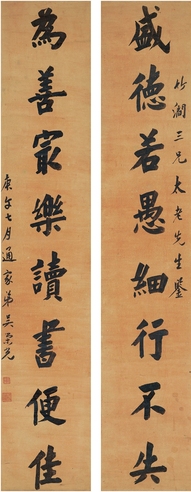 竹澗三兄太老先生鑒
盛德若愚細行不失
為善冣樂讀書便佳
庚午七月通家弟吳榮光